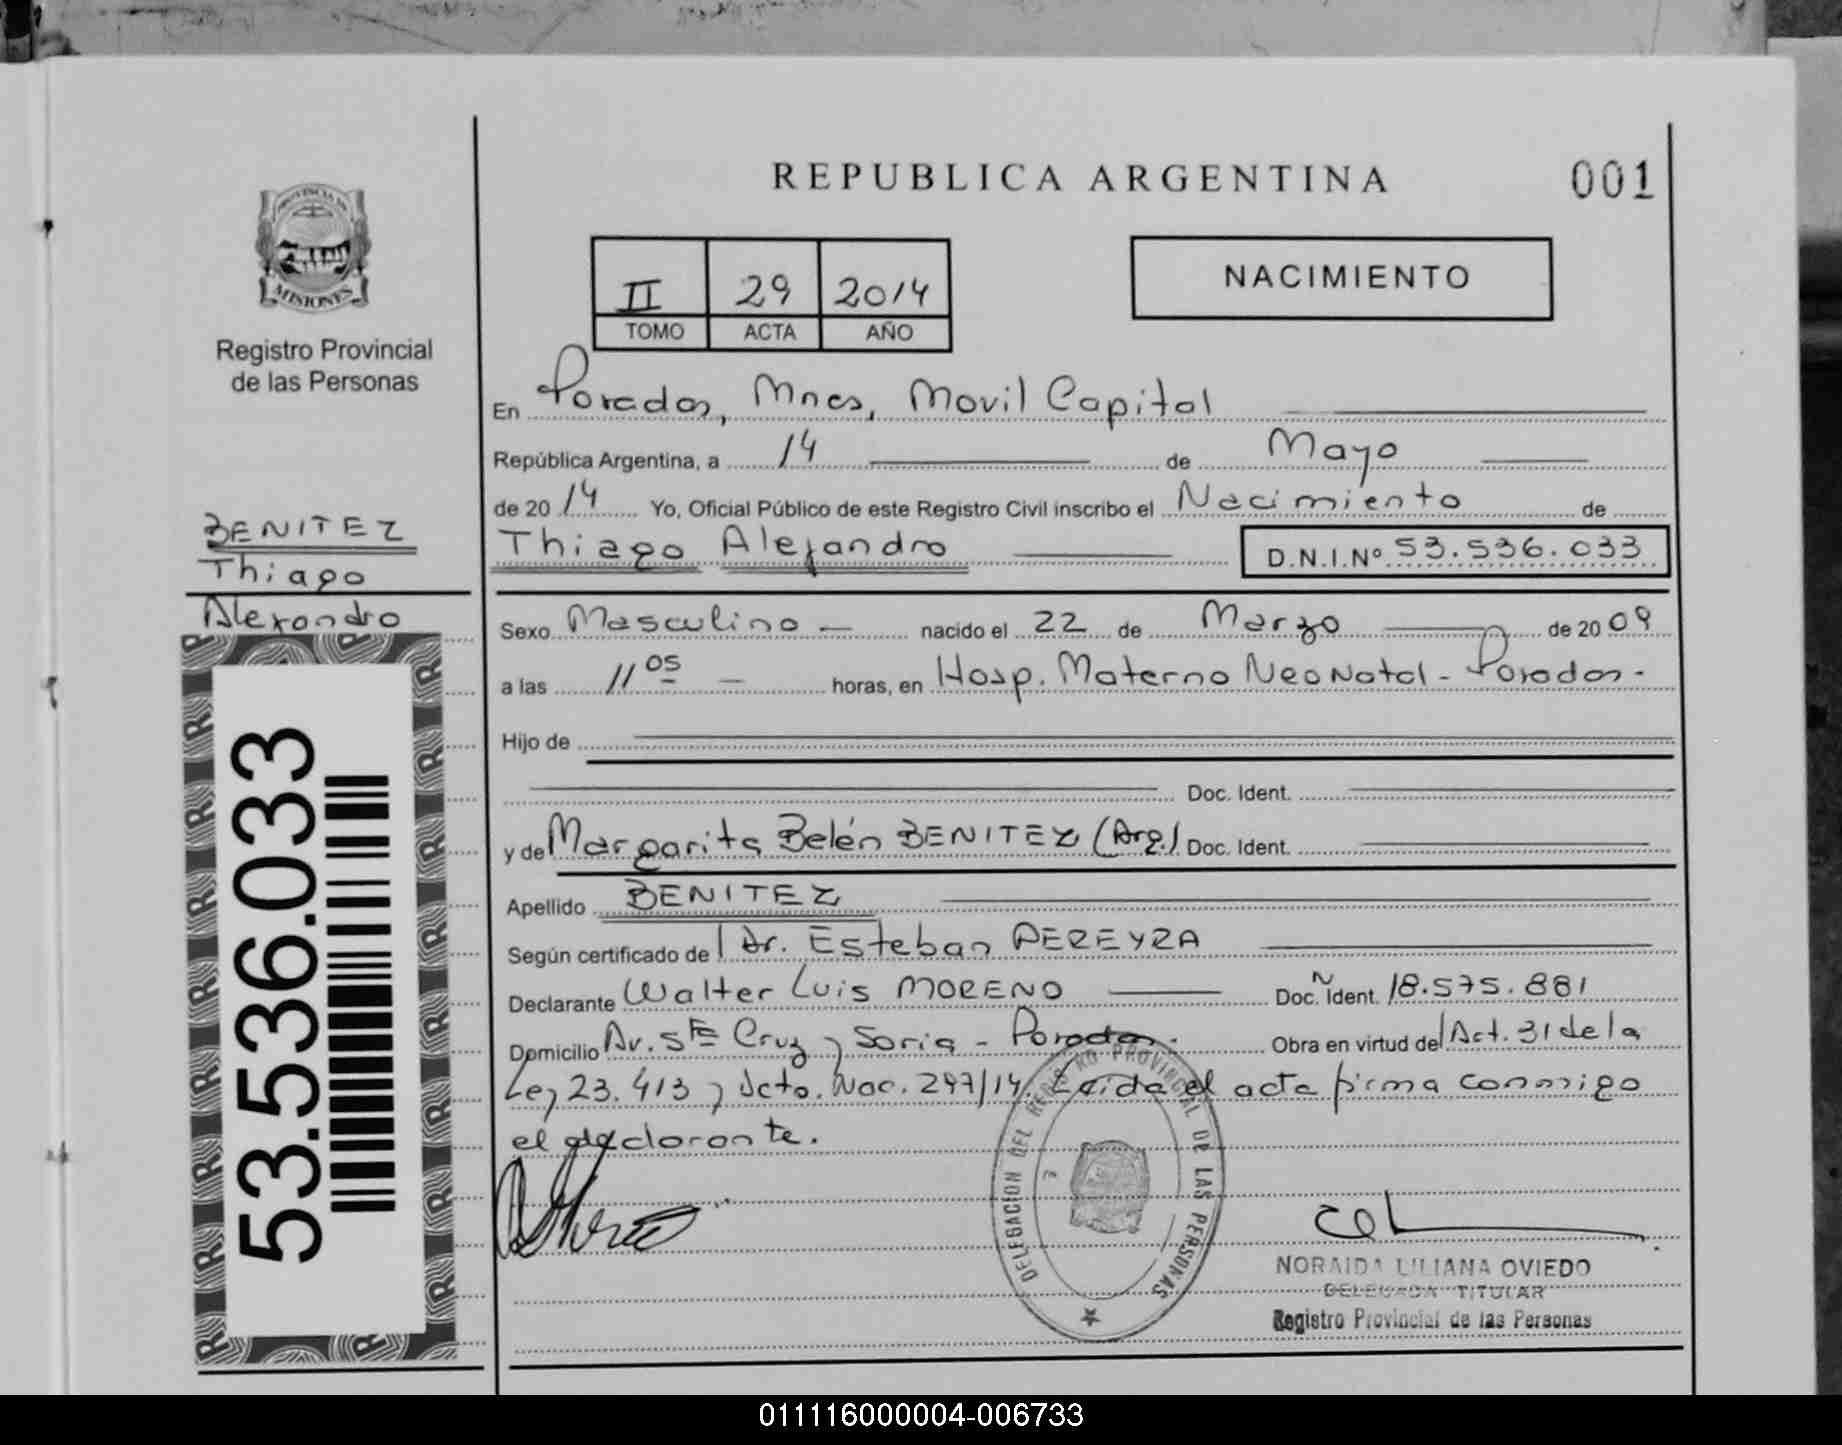 REPUBLICA ARGENTINA
001
PROVINCIA DE
MISIONES
Registro Provincial
de las Personas
II 29 2014
TOMO ACTA AÑO
NACIMIENTO
En Posadas, Mnes, Movil Capital
República Argentina, a 14 de Mayo
de 2014 Yo, Oficial Público de este Registro Civil inscribo el Nacimiento de
Thiago Alejandro D.N.I.Nº 53.536.033
BENITEZ
Thiago
Alejandro
53.536.033
Sexo Masculino nacido el 22 de Marzo de 2009
a las 11 05 horas, en Hosp. Materno Neonatal - Posadas -
Hijo de
Doc. Ident.
y de Margarita Belén BENITEZ (Arg.) Doc. Ident.
Apellido BENITEZ
Según certificado de l Dr. Esteban PEREYRA
Declarante Walter Luis MORENO Doc. Ident. Nº 18.575.881
Domicilio Av. Sta Cruz y Soria - Posadas. Obra en virtud del Act. 31 de la
Ley 23.413 y Dcto. Nac. 297/14. Leida el acta firma conmigo
el declarante.
DELEGACION DEL REGISTRO PROVINCIAL DE LAS PERSONAS
NORAIDA LILIANA OVIEDO
DELEGADA TITULAR
Registro Provincial de las Personas
011116000004-006733